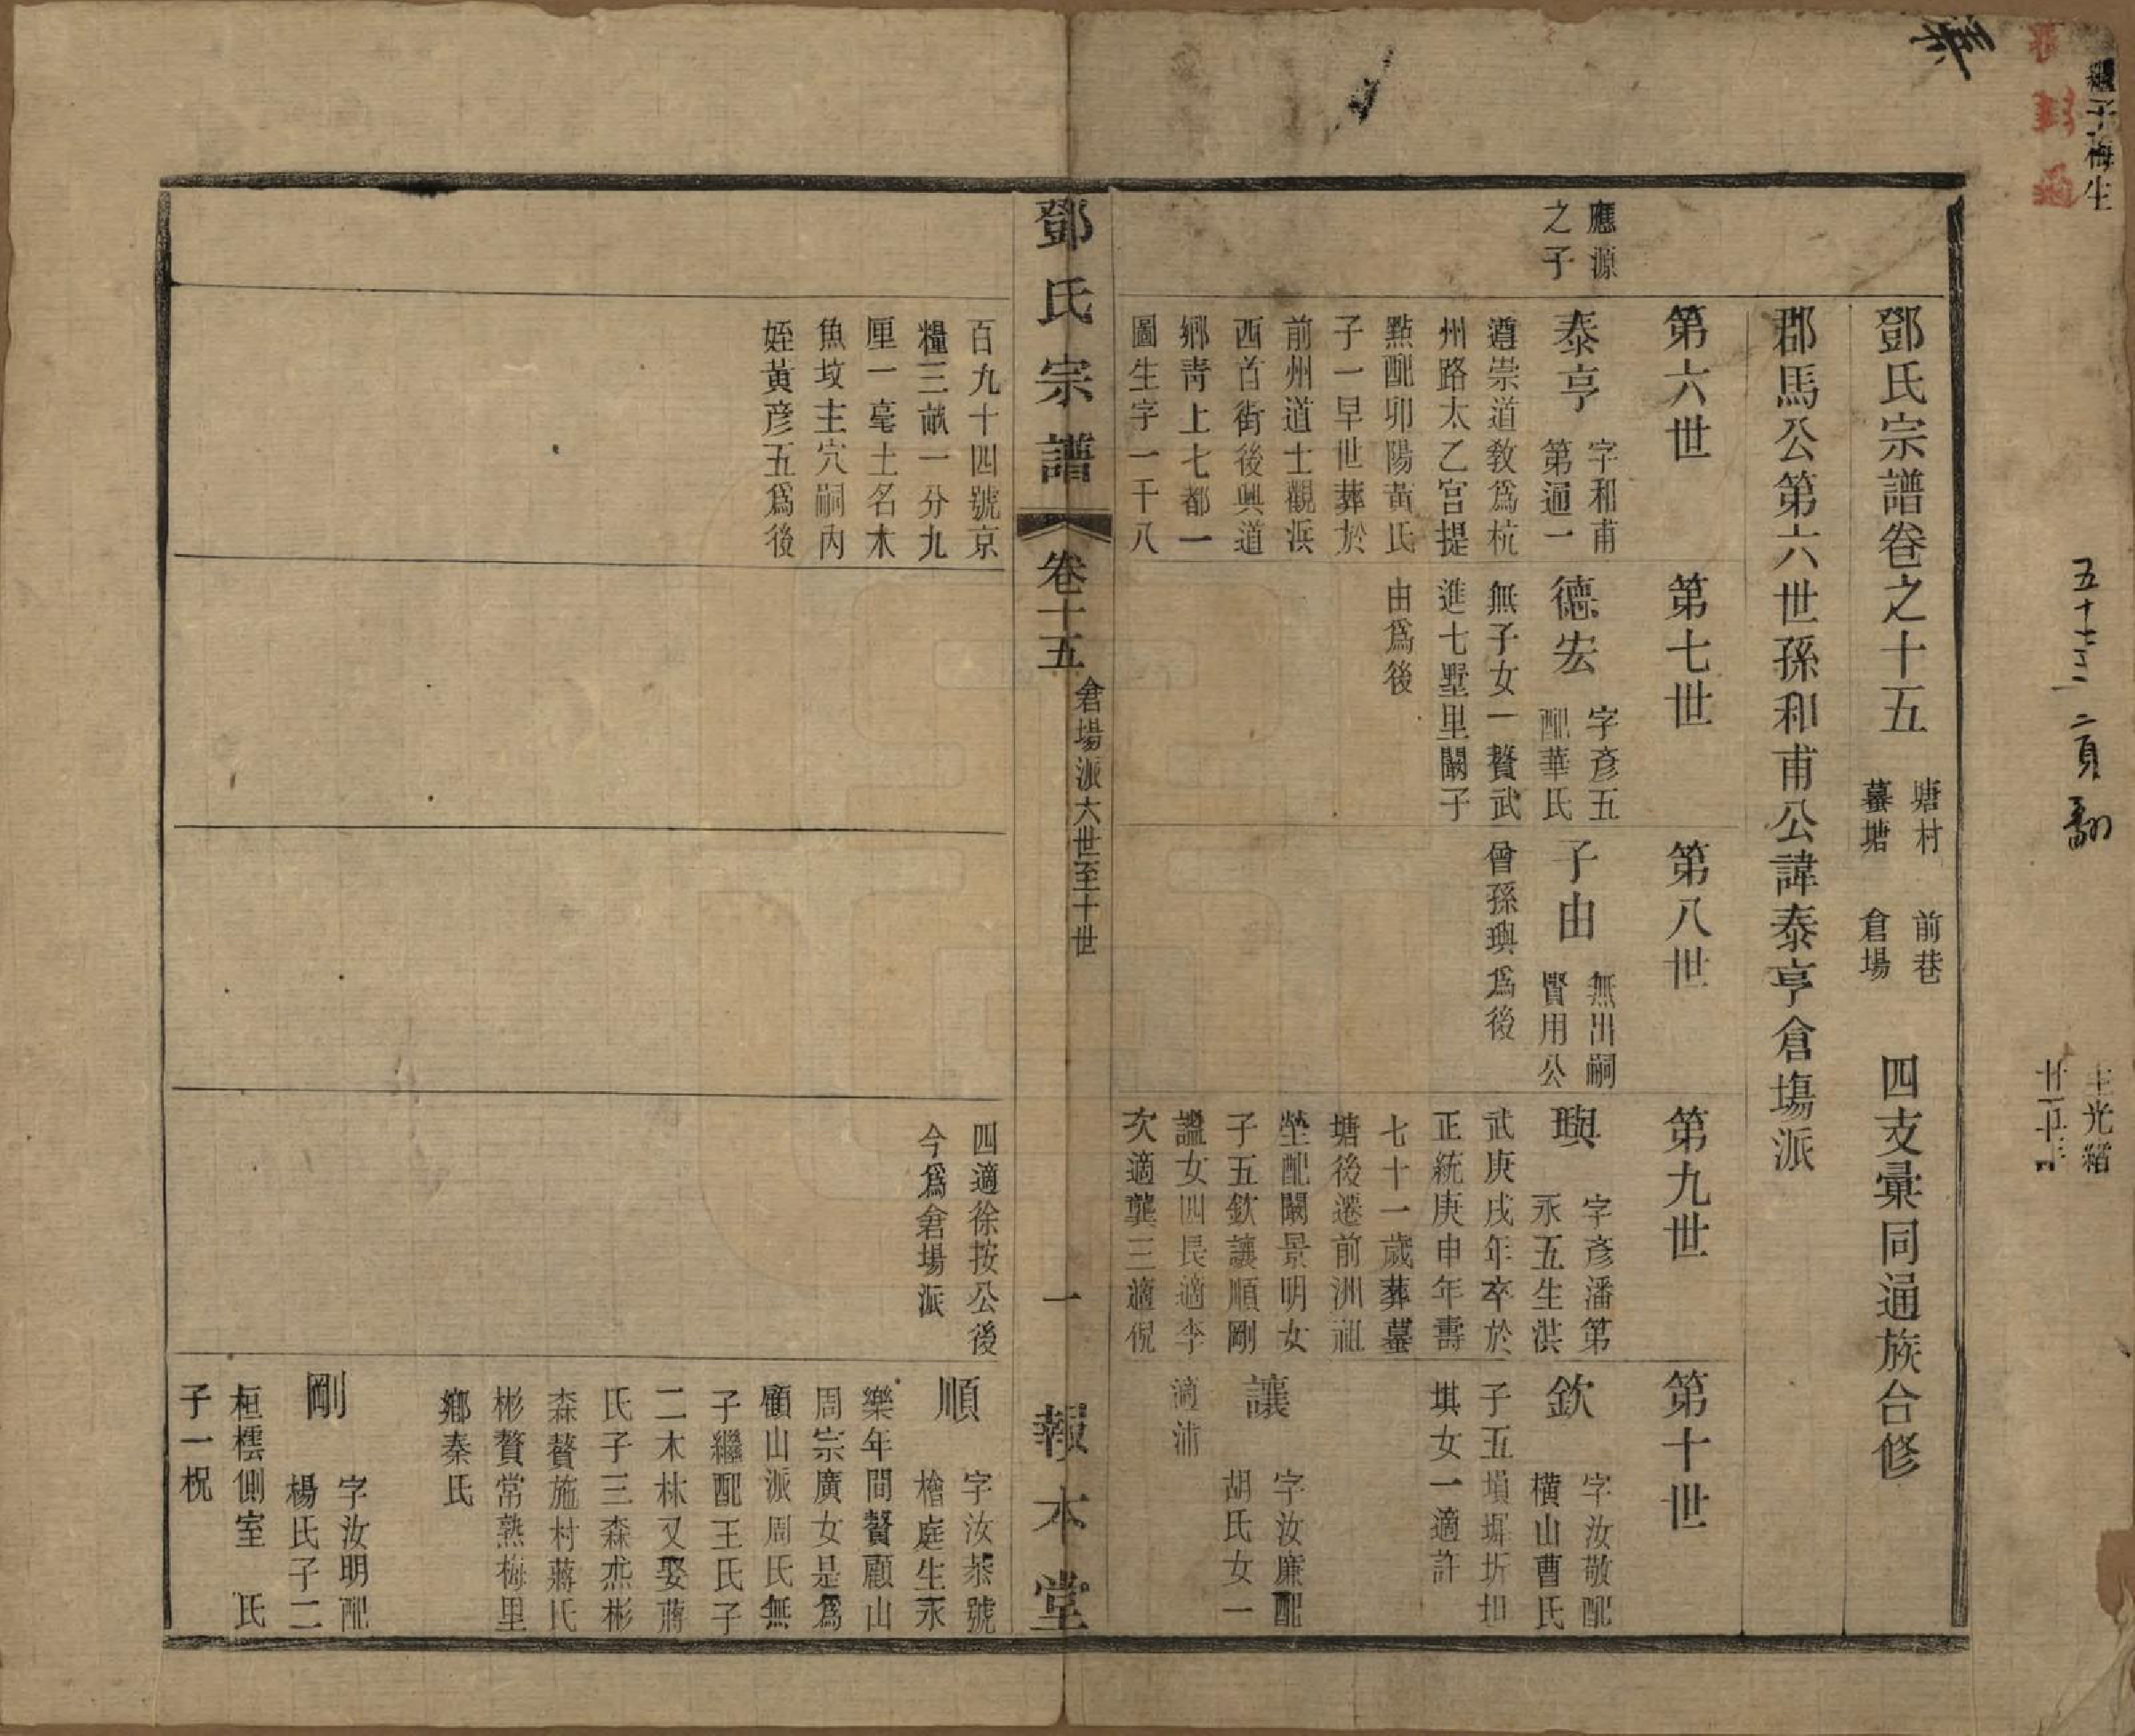 鄧氏宗譜卷之十五
塘村 前巷
蓽塘 倉場
四支彙同通族合修
郡馬公第六世孫和甫公諱泰亨倉塲派
第六世
第七世
第八世
第九世
第十世
應源
之子
泰亨
字和甫
第通一
遵崇道敎爲杭
州路太乙宮提
點配卯陽黃氏
子一早世葬於
前州道士觀浜
西首街後興道
鄉靑上七都一
圖生字一千八
德宏
字彥五
配華氏
無子女一贅武
進七墅里闞子
由爲後
子由
無出嗣
賢用公
曾孫璵爲後
璵
字彥潘第
永五生洪
武庚戌年卒於
正統庚申年壽
七十一歲葬蓽
塘後遷前洲祖
塋配闞景明女
子五欽讓順剛
謐女四長適李
次適龔三適倪
欽
字汝敬配
橫山曹氏
子五塤墀圻坦
堪女一適許
讓
字汝廉配
胡氏女一
適浦
鄧氏宗譜
卷十五
倉塲派六世至十世
一
報本堂
百九十四號京
糧三畝一分九
厘一毫土名木
魚坟主穴嗣內
姪黃彥五爲後
四適徐按公後
今爲倉塲派
順
字汝恭號
檜庭生永
樂年間贅顧山
周宗廣女是爲
顧山派周氏無
子繼配王氏子
二木林又娶蔣
氏子三森烝彬
森贅施村蔣氏
彬贅常熟梅里
鄉秦氏
剛
字汝明配
楊氏子二
桓檽側室 氏
子一柷
五十三 二頁 翻
子梅生